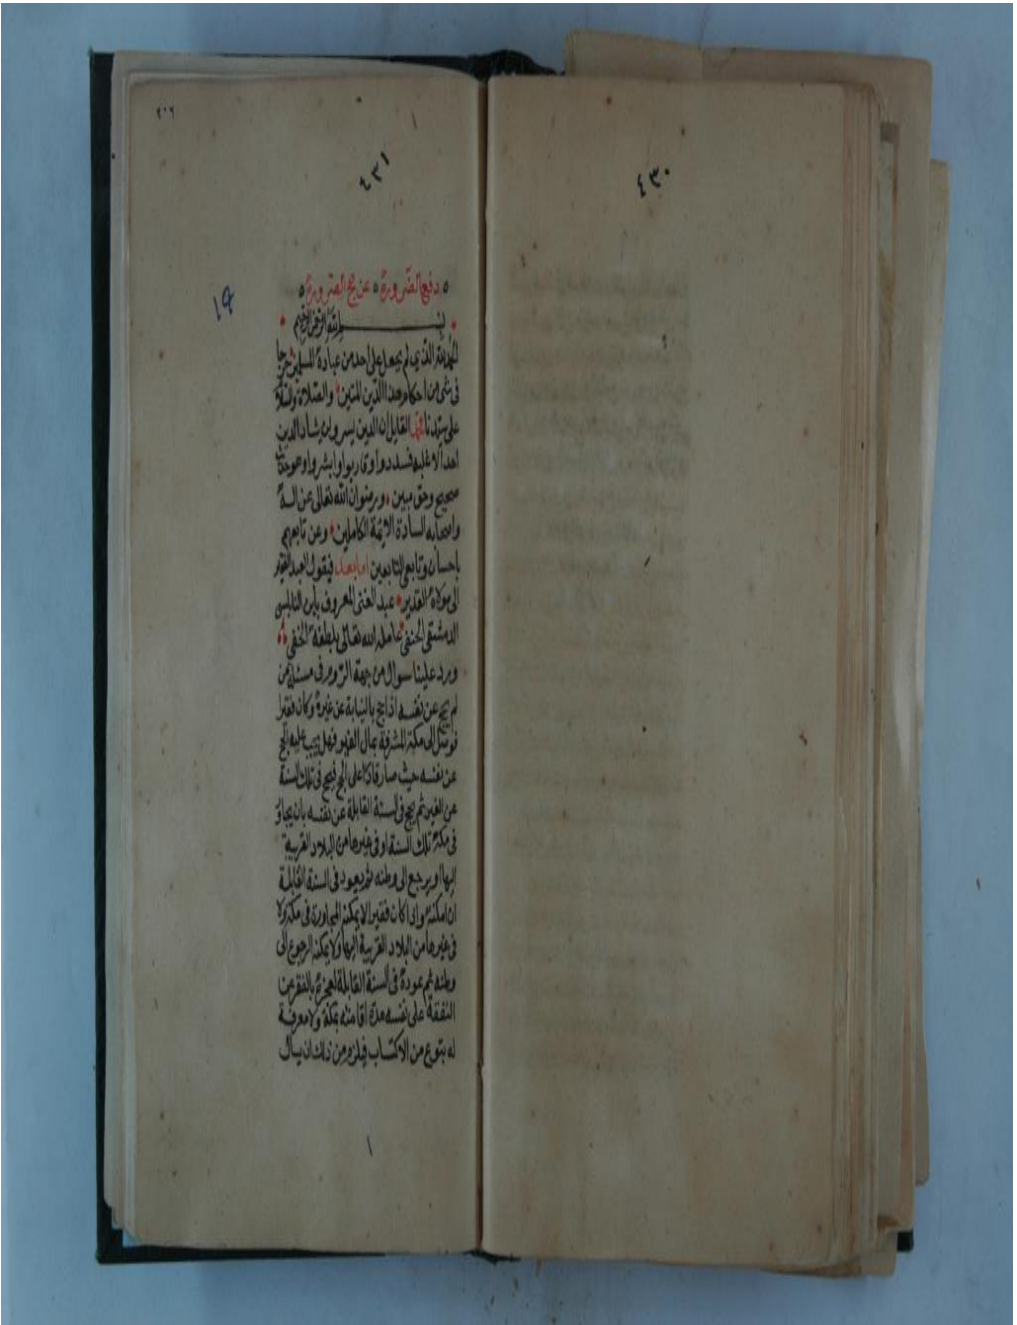 ٤٣٠
٤٣١
٢٠٦
١٩
دفع الضرورة ٥ عن حج الصرورة ٥
بسم الله الرحمن الرحيم
الحمد لله الذي لم يجعل على احد من عباده المسلمين حرجا
في شئ من احكام هذا الدين المتين والصلاة والسلام
على سيدنا محمد القايل ان الدين يسر ولن يشاد الدين
احد الا غلبه فسددوا وقاربوا وابشروا وهو حديث
صحيح وحق مبين ورضوان الله تعالى عن اله
واصحابه السادة الايمة الكاملين وعن تابعيهم
باحسان وتابعي التابعين اما بعد فيقول العبد الفقير
الى مولاه القدير عبد الغنى المعروف بابن النابلسى
الدمشقى الحنفى عامله الله تعالى بلطفه الخفى
ورد علينا سوال من جهة الروم في مسئلة من
لم يحج عن نفسه اذا حج بالنيابة عن غيره وكان فقيرا
فوصل الى مكة المشرفة بمال الغير فهل يجب عليه الحج
عن نفسه حيث صار قادرا على الحج فيحج في تلك السنة
عن الغير ثم يحج في السنة القابلة عن نفسه بان يجاور
في مكة تلك السنة او في غيرها من البلاد القريبة
اليها او يرجع الى وطنه ثم يعود في السنة القابلة
ان امكنه واذا كان فقيرا لا يمكنه المجاورة في مكة ولا
في غيرها من البلاد القريبة اليها ولا يمكنه الرجوع الى
وطنه ثم عوده في السنة القابلة لعجزه بالفقر عن
النفقة على نفسه مدة اقامته بمكة ولا معرفة
له بنوع من الاكتساب فيلزم من ذلك ان يسال